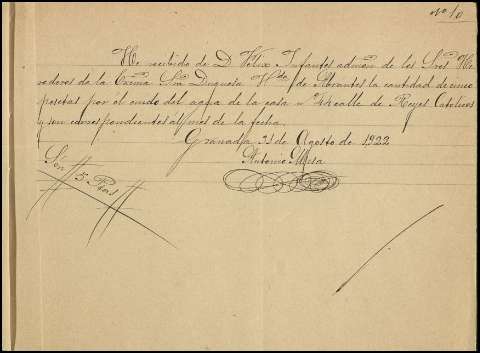 Nº 10
He recibido de D. Félix Infantes admon de los Sres He-
rederos de la Exma Sra Duquesa Vda de Abrantes la cantidad de cinco
pesetas por el cuido del agua de la casa nº 44 calle de Reyes Católicos
y son correspondientes al mes de la fecha.
Granada 31 de Agosto de 1922
Antonio Mesa
Son 5 Ptas